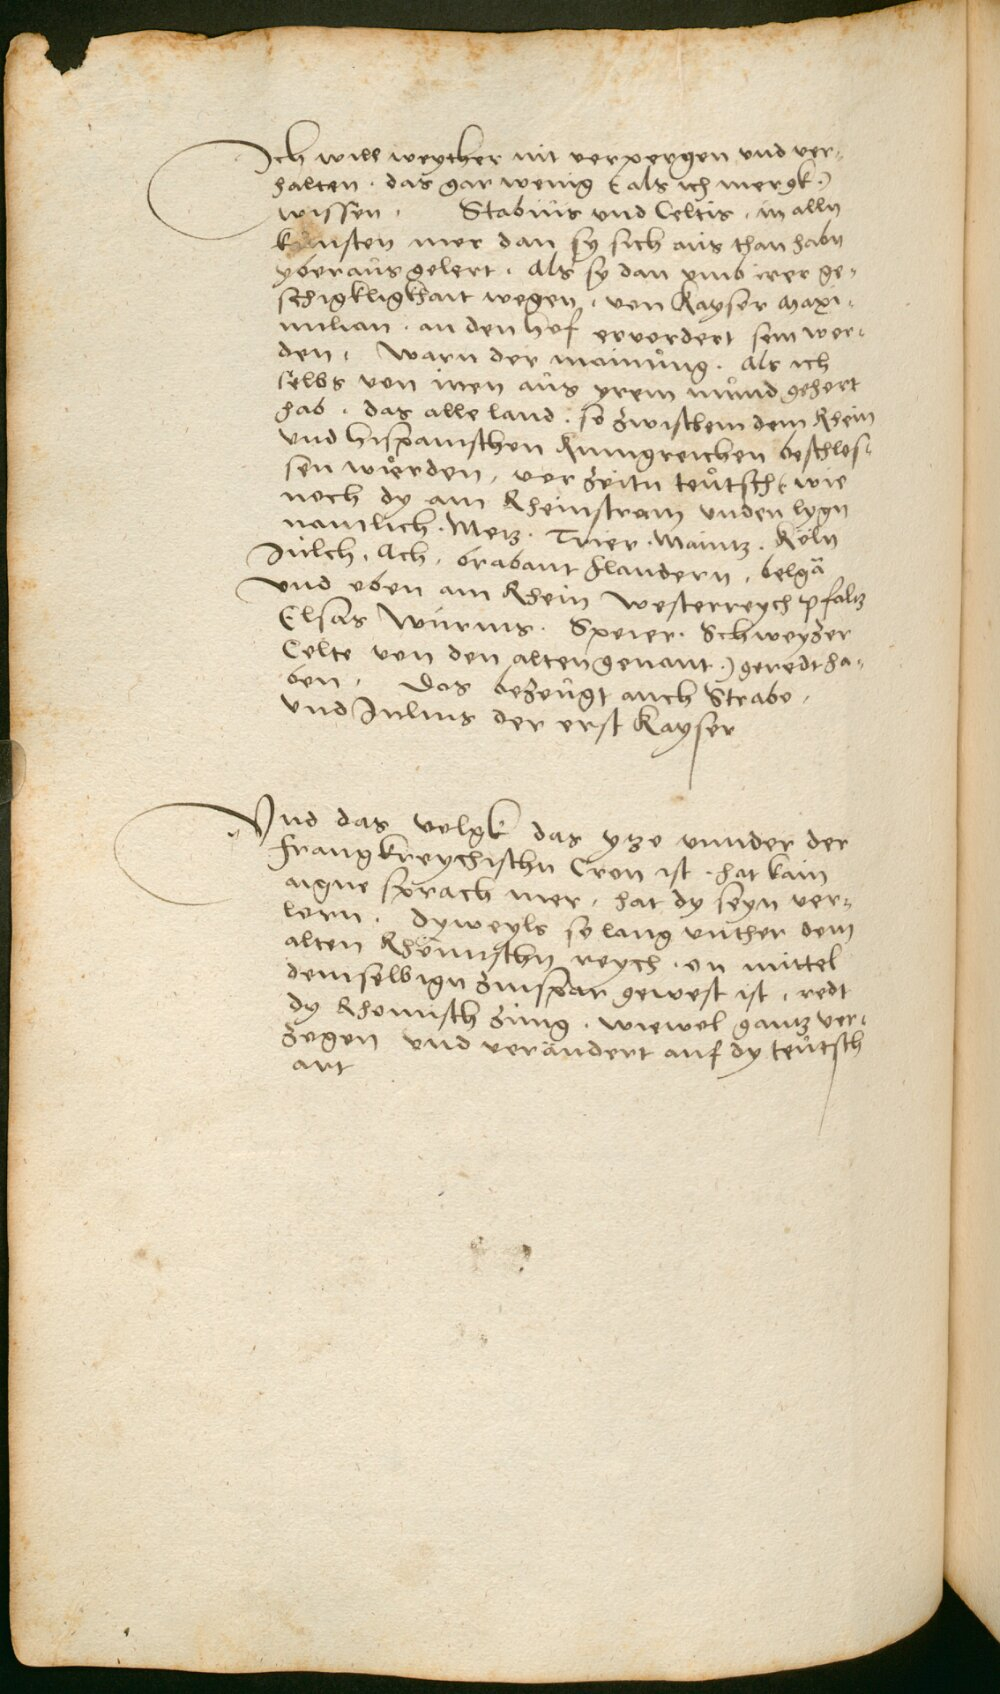 Ich will weyther nit verpergen und ver-
halten . das gar wenig ( als ich mergk .)
wissen . Stabius und Celtis . in alln
kunsten mer dan sy sich aus than habn
yberaus gelert . Als sy dan umb irer ge-
schigkligkhait wegen . von Kayser Maxi-
milian . an den hof ervordert sein wor-
den . Warn der mainung . Als ich
selbs von inen aus yrem mund gehort
hab . das alle land . so zwischem dem Rhein
und hispanischen Kunigreichen beschlos-
sen wurden , vor zeitn teutsch ( wie
noch dy am Rheinstram unden lygn
namlich . Metz . Trier . Maintz . Köln
Julch . Ach . brabant flandern . belgä
und oben am Rhein westerreych pfaltz
Elsas Wurms . Speier . Schweyzer
Celte von den alten genant .) geredt ha-
ben . Das bezeugt auch Strabo .
und Julius der erst Kayser
Und das volgk das ytzo unnder der
frangkreychischn Cron ist . hat kain
aigne sprach mer . hat dy seyn ver-
lorn . dyweyls so lang unther dem
alten Rhömischn reych . on mittel
demselbign zinspar gewest ist . redt
dy Rhomisch zung . wiewol gantz ver-
zogen und verändert auf dy teutsch
art